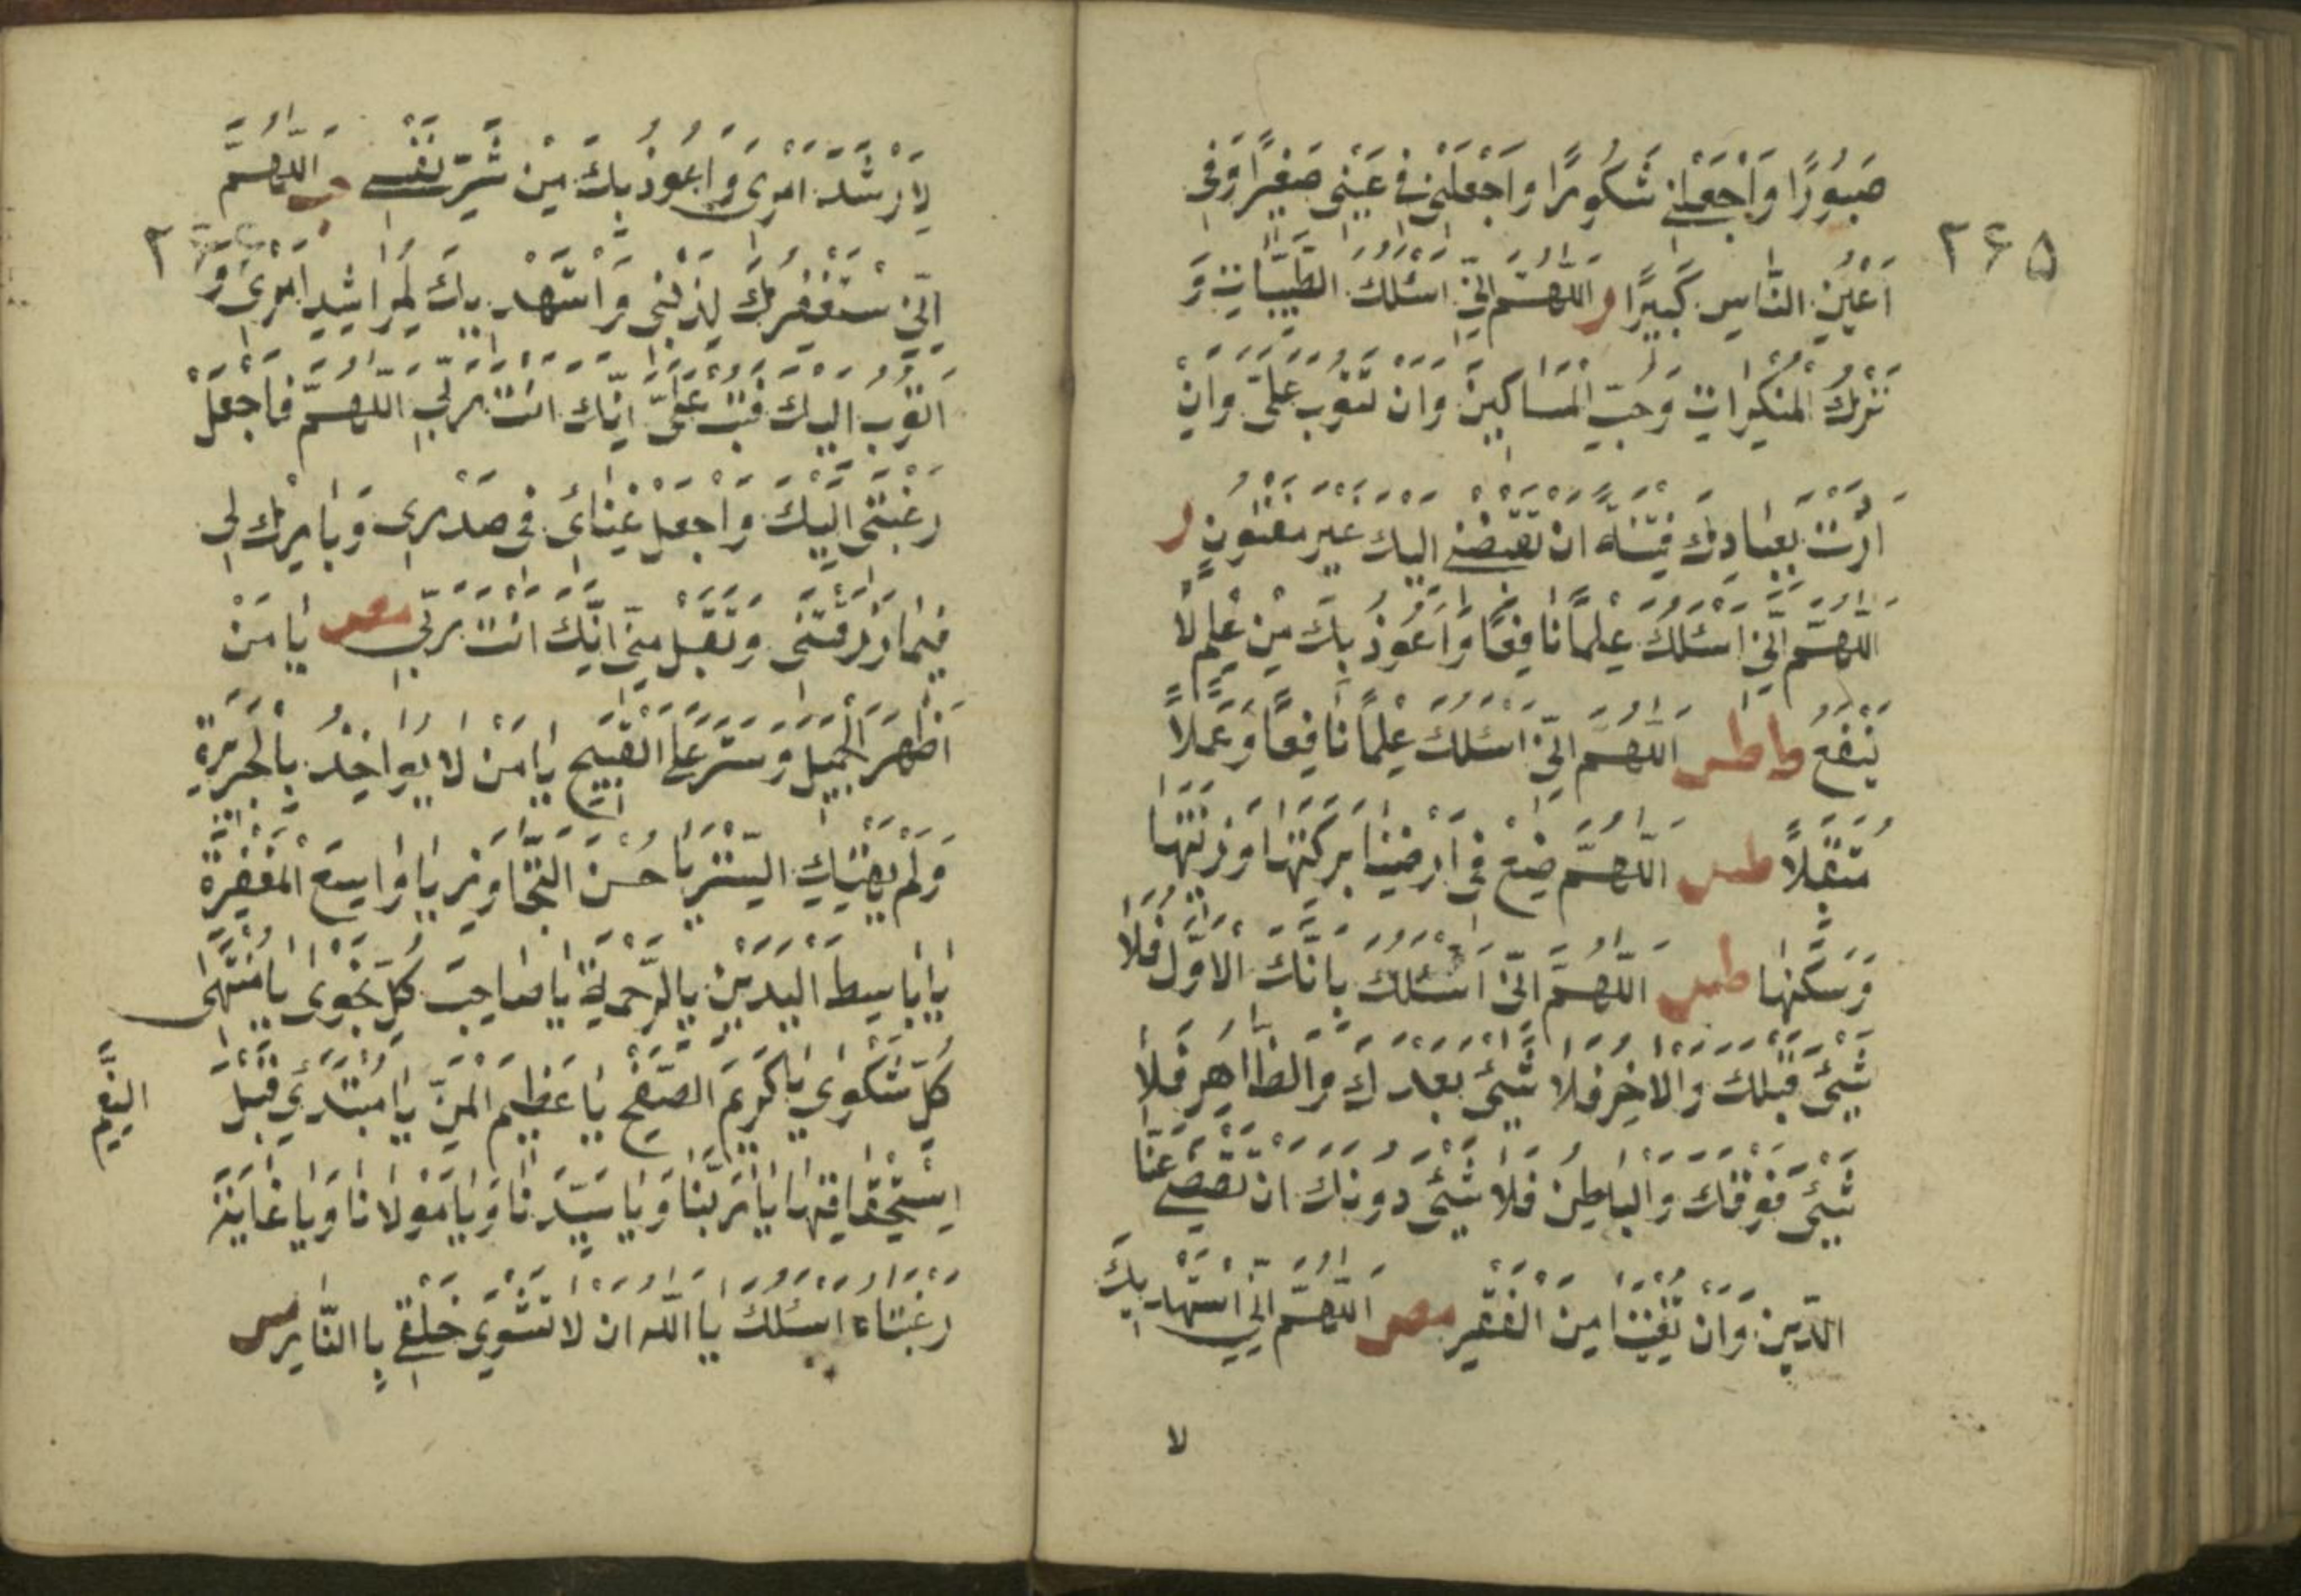 صَبُورًا وَاجْعَلْنِي شَكُورًا وَاجْعَلْنِي فِي عَيْنِي صَغِيرًا وَفِي
٢٦٥
اَعْيُنِ النَّاسِ كَبِيرًا ر اَللّٰهُمَّ اِنِّي اَسْئَلُكَ الطَّيِّبَاتِ وَ
تَرْكَ الْمُنْكَرَاتِ وَحُبَّ الْمَسَاكِينَ وَاَنْ تَتُوبَ عَلَيَّ وَاِنْ
اَرَدْتَ بِعِبَادِكَ فِتْنَةً اَنْ تَقْبِضَنِي اِلَيْكَ غَيْرَ مَفْتُونٍ ر
اَللّٰهُمَّ اِنِّي اَسْئَلُكَ عِلْمًا نَافِعًا وَاَعُوذُ بِكَ مِنْ عِلْمٍ لَا
يَنْفَعُ طس اَللّٰهُمَّ اِنِّي اَسْئَلُكَ عِلْمًا نَافِعًا وَعَمَلًا
مُتَقَبَّلًا طس اَللّٰهُمَّ ضَعْ فِي اَرْضِنَا بَرَكَتَهَا وَزِينَتَهَا
وَسَكَنَهَا طس اَللّٰهُمَّ اِنِّي اَسْئَلُكَ بِاَنَّكَ الْاَوَّلُ فَلَا
شَيْئَ قَبْلَكَ وَالْاٰخِرُ فَلَا شَيْئَ بَعْدَكَ وَالظَّاهِرُ فَلَا
شَيْئَ فَوْقَكَ وَالْبَاطِنُ فَلَا شَيْئَ دُونَكَ اَنْ تَقْضِيَ عَنَّا
الدَّيْنَ وَاَنْ تُغْنِيَنَا مِنَ الْفَقْرِ مص اَللّٰهُمَّ اِنِّي اَسْتَهْدِيكَ
لا
لِاَرْشَدِ اَمْرِي وَاَعُوذُ بِكَ مِنْ شَرِّ نَفْسِي حب اَللّٰهُمَّ
اِنِّي اَسْتَغْفِرُكَ لِذَنْبِي وَاَسْتَهْدِيكَ لِمَرَاشِدِ اَمْرِي وَ
اَتُوبُ اِلَيْكَ فَتُبْ عَلَيَّ اِنَّكَ اَنْتَ رَبِّي اَللّٰهُمَّ فَاجْعَلْ
رَغْبَتِي اِلَيْكَ وَاجْعَلْ غِنَائِي فِي صَدْرِي وَبَارِكْ لِي
فِيمَا رَزَقْتَنِي وَتَقَبَّلْ مِنِّي اِنَّكَ اَنْتَ رَبِّي مص يَا مَنْ
اَظْهَرَ الْجَمِيلَ وَسَتَرَ عَلَى الْقَبِيحِ يَا مَنْ لَا يُؤَاخِذُ بِالْجَرِيرَةِ
وَلَمْ يَهْتِكِ السِّتْرَ يَا حُسْنَ التَّجَاوُزِ يَا وَاسِعَ الْمَغْفِرَةِ
يَا بَاسِطَ الْيَدَيْنِ بِالرَّحْمَةِ يَا صَاحِبَ كُلِّ نَجْوٰى يَا مُنْتَهٰى
كُلِّ شَكْوٰي يَا كَرِيمَ الصَّفْحِ يَا عَظِيمَ الْمَنِّ يَا مُبْتَدِئَ قَبْلَ
النِّعَمِ
اِسْتِحْقَاقِهَا يَا رَبَّنَا وَيَا سَيِّدَنَا وَيَا مَوْلَانَا وَيَا غَايَةَ
رَغْبَتِنَا اَسْئَلُكَ يَا اَللّٰهُ اَنْ لَا تَشْوِيَ خَلْقِي بِالنَّارِ مس